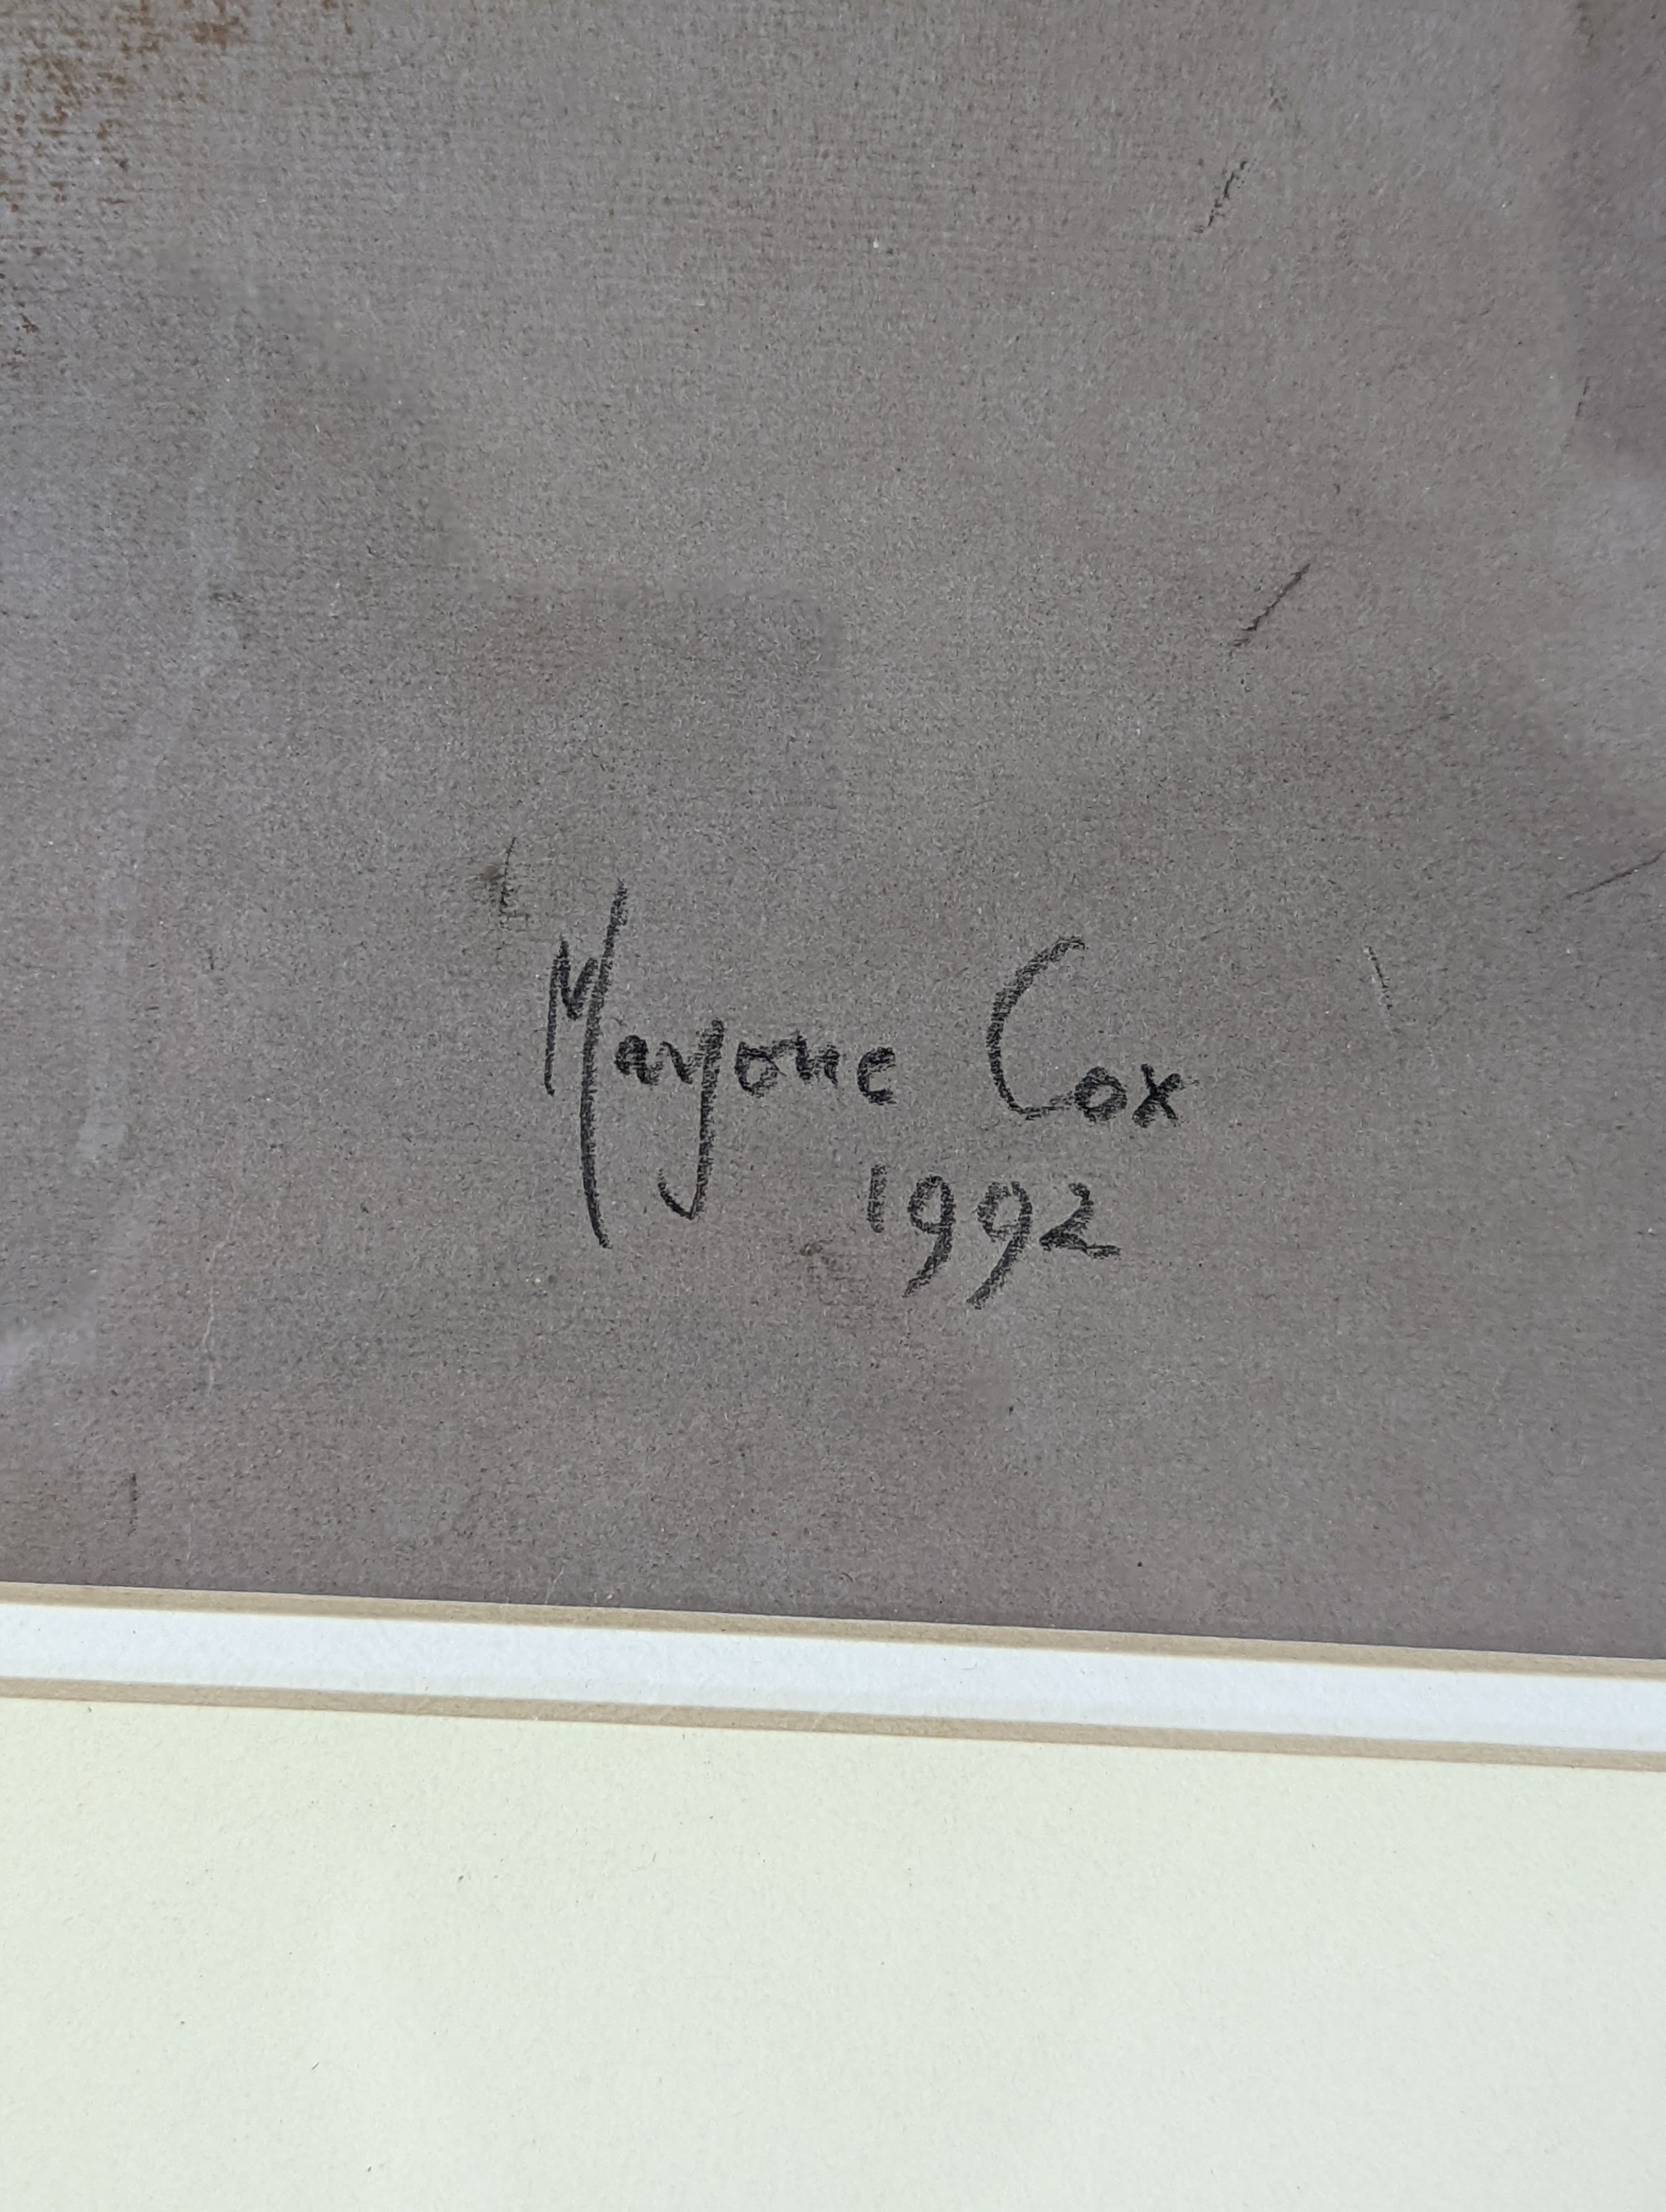 Marjorie Cox
1992